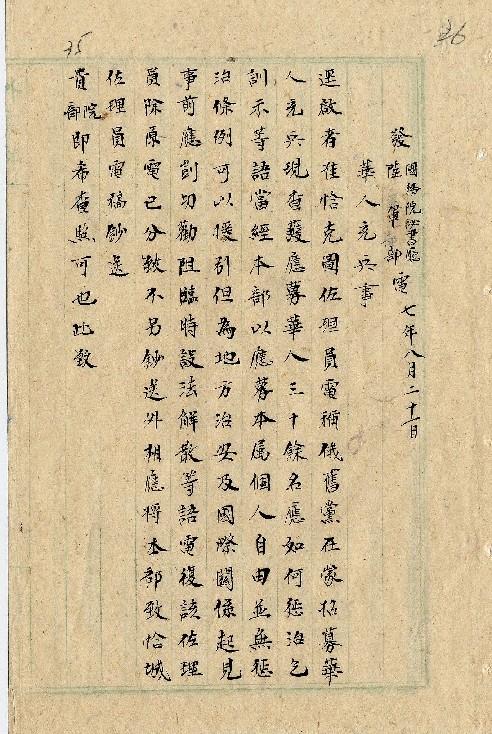 35
36
發 國務院秘書廳 陸軍部 電 七年八月二十一日
華人充兵事
逕啟者准恰克圖佐理員電稱俄舊黨在蒙招募華
人充兵現查獲應募華人三十餘名應如何懲治乞
訓示等語當經本部以應募本屬個人自由並無懲
治條例可以援引但為地方治安及國際關係起見
事前應剴切勸阻臨時設法解散等語電復該佐理
員除原電已分致不另鈔送外相應將本部致恰城
佐理員電稿鈔送
貴院部即希查照可也此致